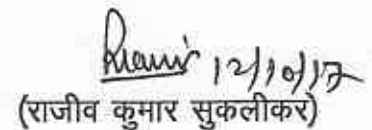 12/10/17
(राजीव कुमार सुकलीकर)